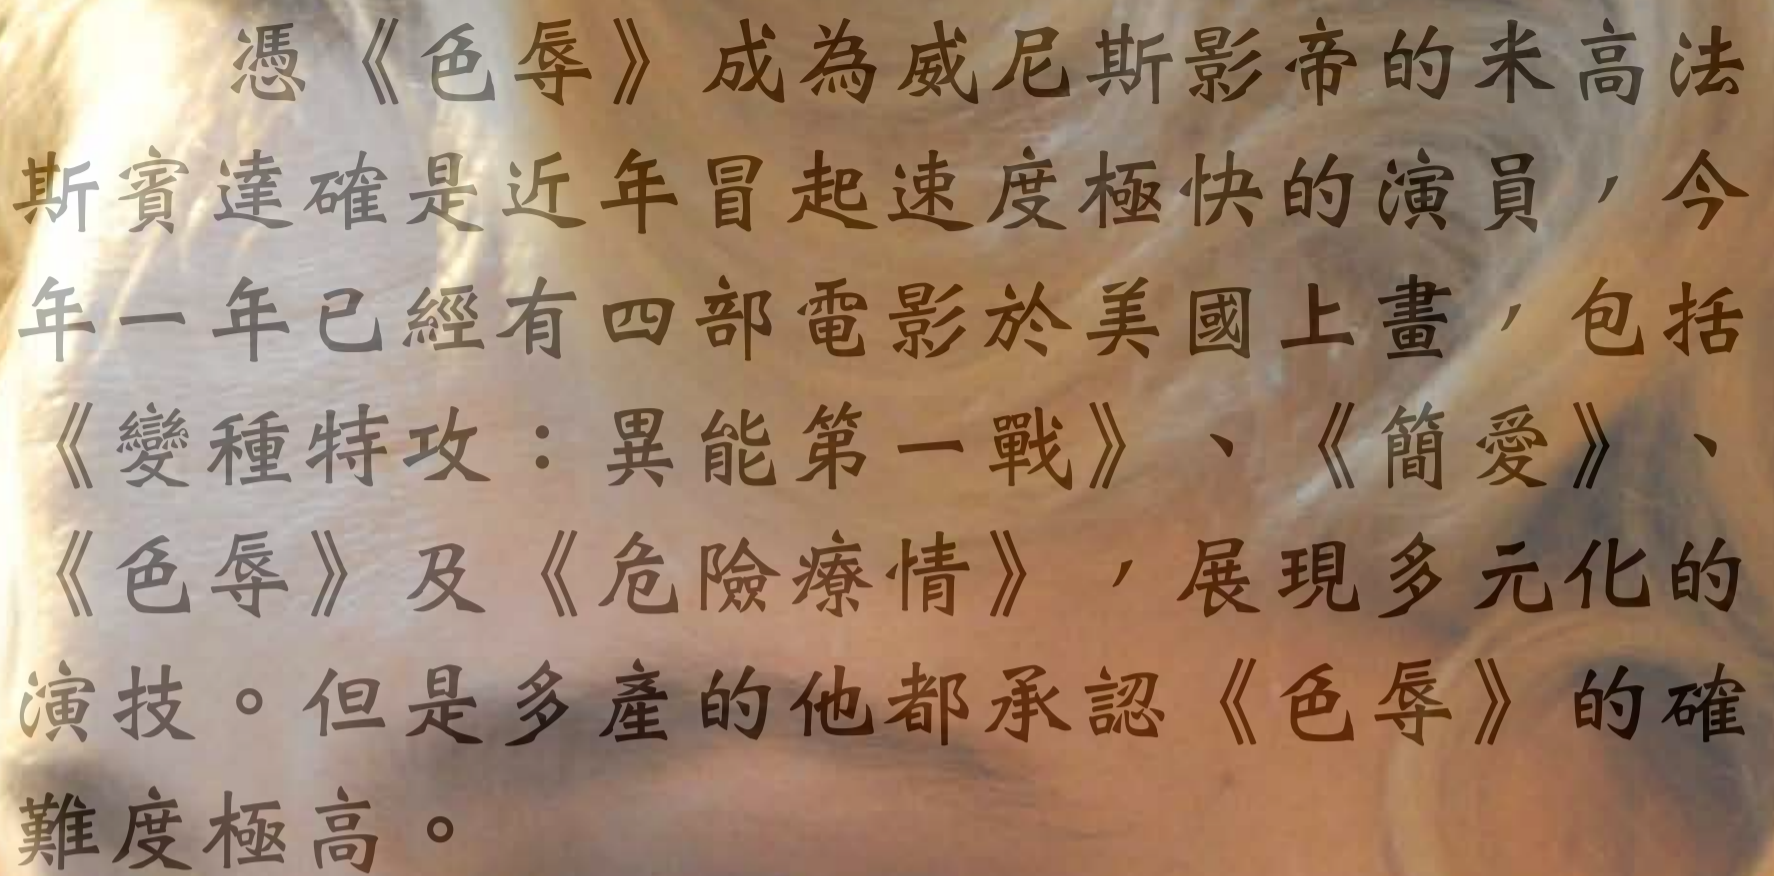 憑《色辱》成為威尼斯影帝的米高法
斯賓達確是近年冒起速度極快的演員，今
年一年已經有四部電影於美國上畫，包括
《變種特攻：異能第一戰》、《簡愛》、
《色辱》及《危險療情》，展現多元化的
演技。但是多產的他都承認《色辱》的確
難度極高。